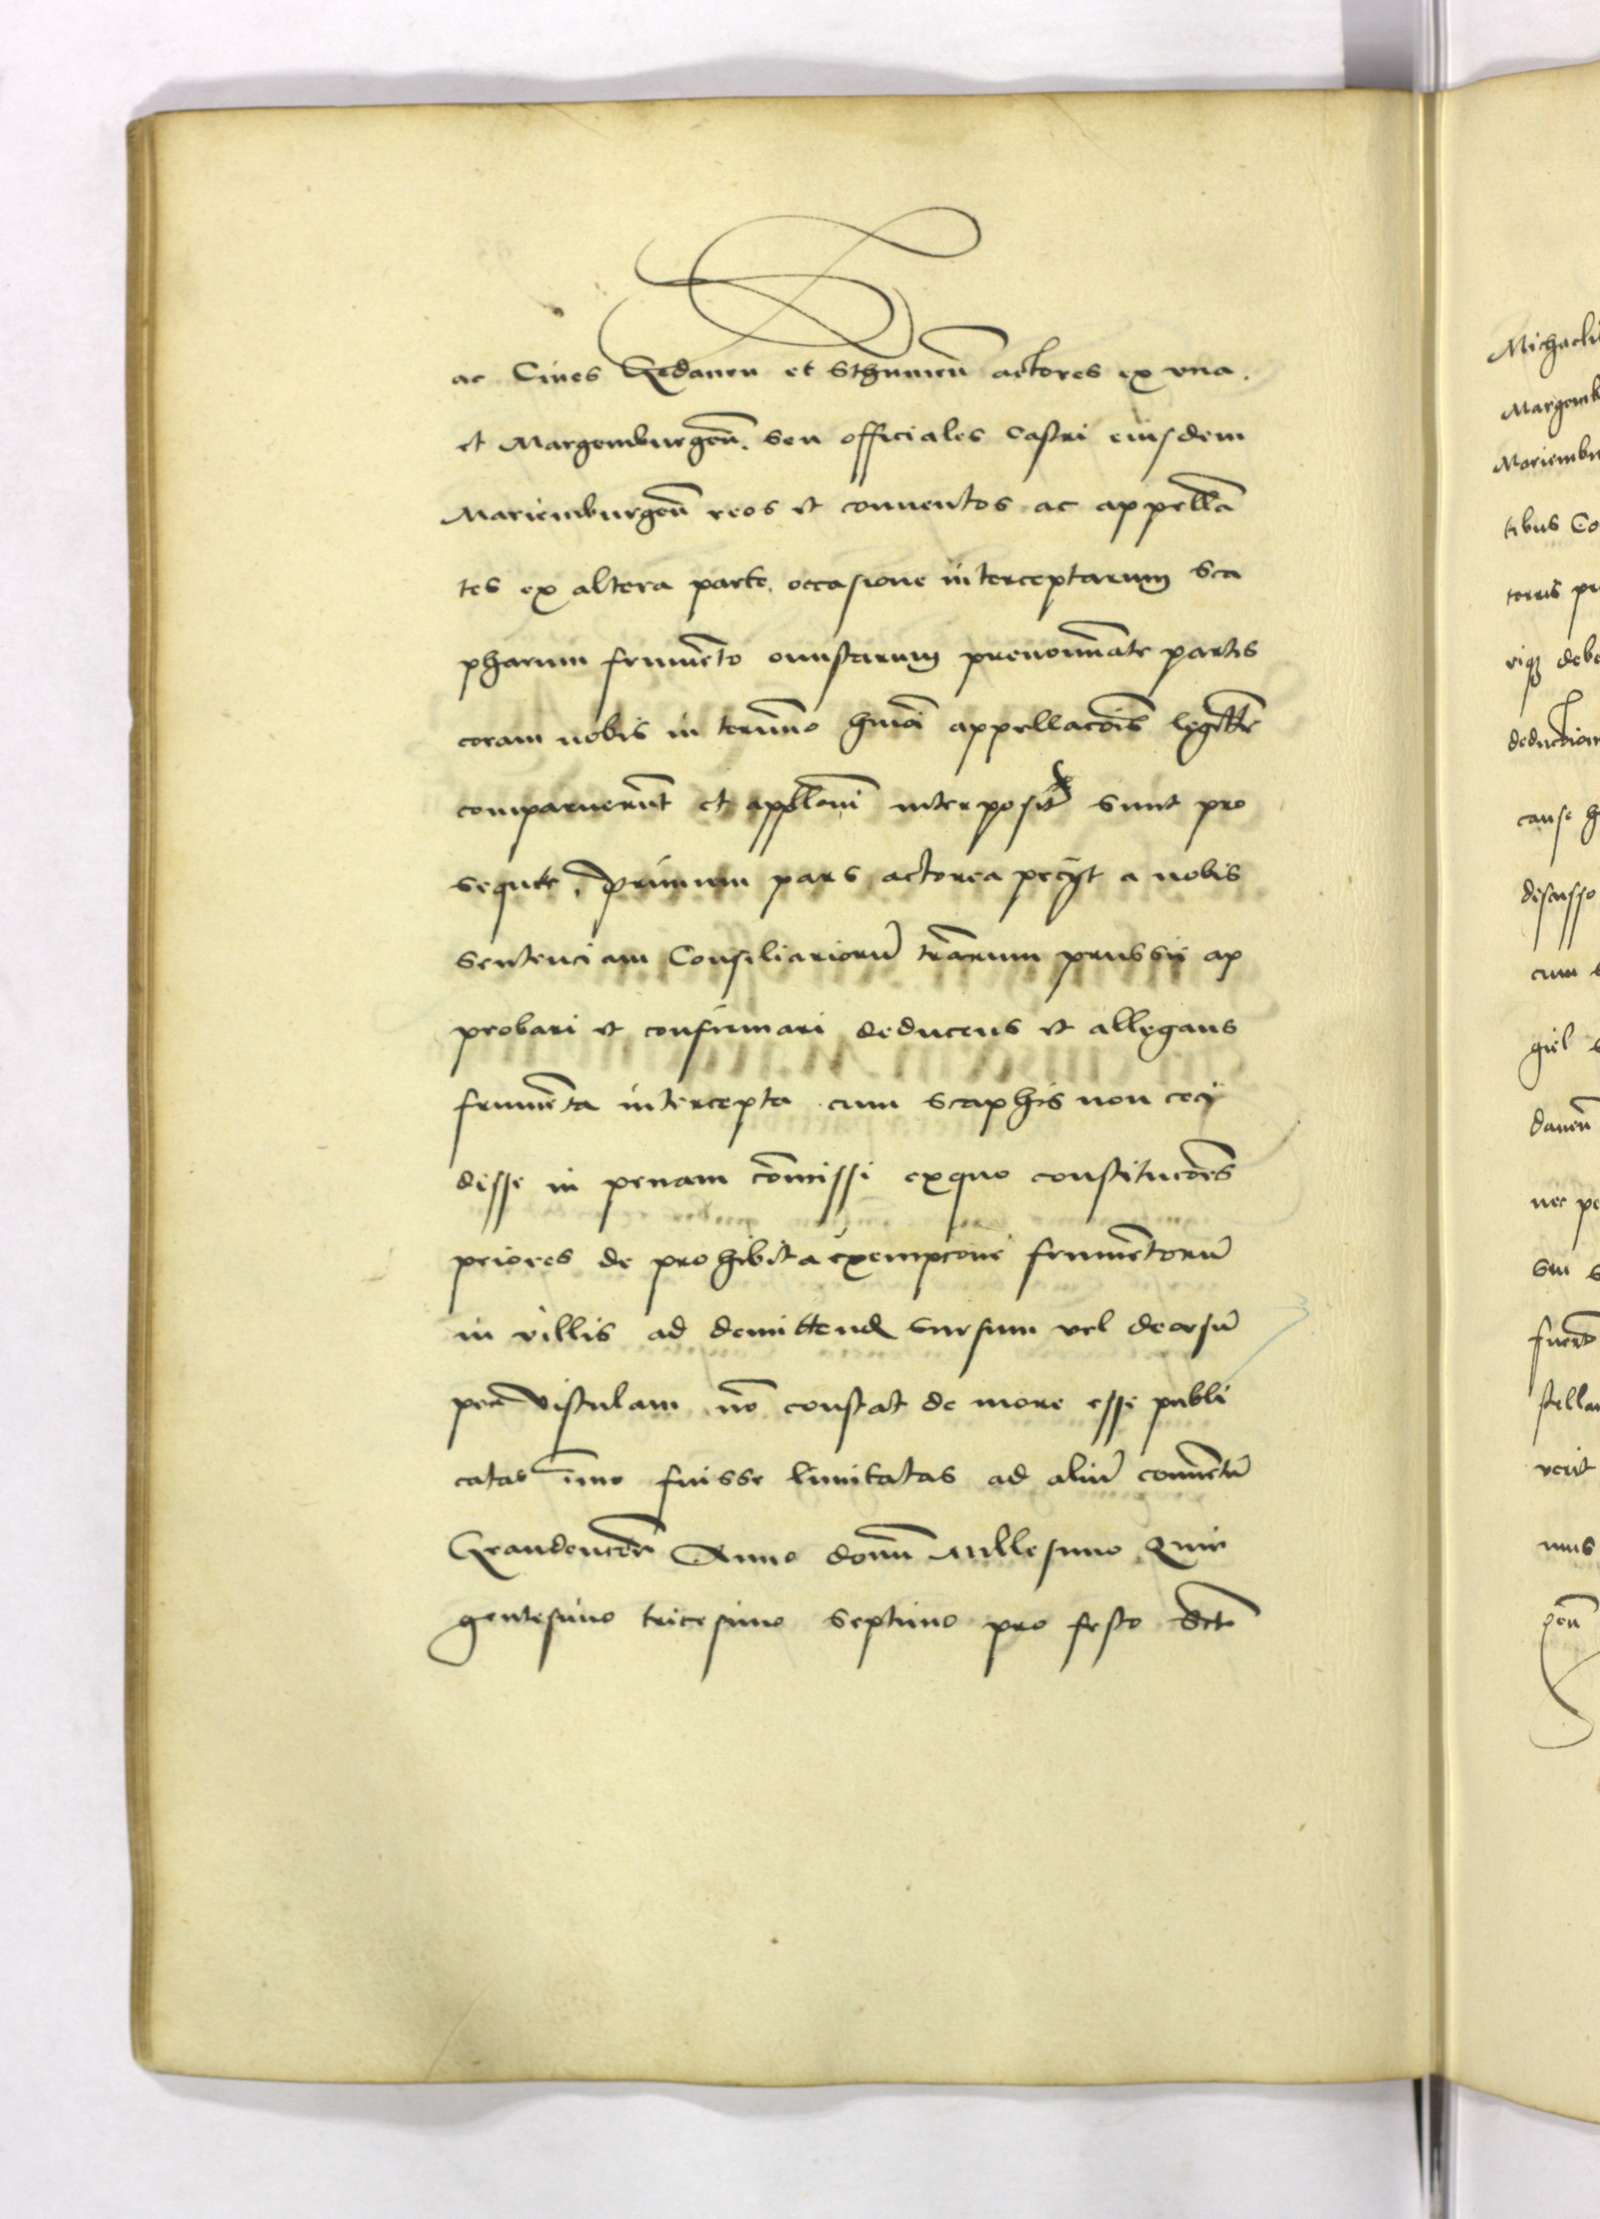 ac Ciues Gedanen et Sthumen̄ actores ex vna.
et Margemburgen̄. seu officiales castri eiusdem
Mariemburgen̄ reos et conuentos ac appellā
tes ex altera parte, occasione interceptarum sca
pharum frumēto onustarum prenoīnate partes
coram nobis in termīno hmōi appellacōis legittīe
comparuerūnt et appllōni interposite sunt pro
secute. Primum pars actorea pecijt a nobis
sentenciam Consiliariorū tr̄arum prussie ap
probari et confirmari deducens et allegans
frumēta intercepta cum scaphis non ceci
disse in penam cōmissi exquo constitucōes
priores de prohibita exempcōne frumētorū
in villis ad demittend sursum vel deorsū
per vistulam nō constat de more esse publi
catas īmo fuisse limitatas ad aliū conuētū
Graudencen̄ Anno domī Millesimo Quin
gentesimo tricesimo septimo pro festo scti
Michaeli
Margemb
Mariembu
tibus Co
terris pr
riqz debe
deduction
cause h
discusso
cum s
giel s
danen̄
nec pe
seu s
fuerūt
stellan
verit
mus
gen̄